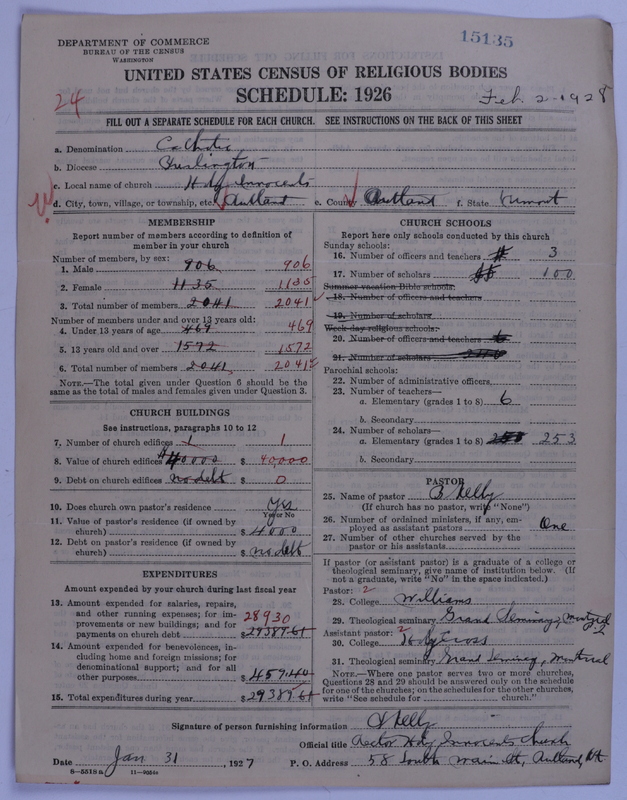 DEPARTMENT OF COMMERCE
BUREAU OF THE CENSUS
WASHINGTON
15135
UNITED STATES CENSUS OF RELIGIOUS BODIES
SCHEDULE: 1926
24
Feb. 2 1928
FILL OUT A SEPARATE SCHEDULE FOR EACH CHURCH. SEE INSTRUCTIONS ON THE BACK OF THIS SHEET
a. Denomination Catholic
b. Diocese Burlington
c. Local name of church Holy Innocents
d. City, town, village, or township, etc. Rutland e. County Rutland f. State Vermont
MEMBERSHIP
Report number of members according to definition of
member in your church
Number of members, by sex:
1. Male 906 906
2. Female 1135 1135
3. Total number of members 2041 2041
Number of members under and over 13 years old:
4. Under 13 years of age 469 469
5. 13 years old and over 1572 1572
6. Total number of members 2041 2041
NOTE.—The total given under Question 6 should be
same as the total of males and females given under Question 3.
CHURCH BUILDINGS
See instructions, paragraphs 10 to 12
7. Number of church edifices 1 1
8. Value of church edifices $40000 $ 40,000
9. Debt on church edifices no debt $ 0
10. Does church own pastor's residence Yes
Yes or No
11. Value of pastor's residence (if owned by
church) $ 4000
12. Debt on pastor's residence (if owned by
church) $ no debt
EXPENDITURES
Amount expended by your church during last fiscal year
13. Amount expended for salaries, repairs,
and other running expenses; for im-
provements or new buildings; and for
payments on church debt 28930
$ 29389.61
14. Amount expended for benevolences, in-
cluding home and foreign missions; for
denominational support; and for all
other purposes $ 459.40
15. Total expenditures during year $ 29389.61
CHURCH SCHOOLS
Report here only schools conducted by this church
Sunday schools:
16. Number of officers and teachers 3
17. Number of scholars 100
Summer vacation Bible schools:
18. Number of officers and teachers
19. Number of scholars
Week-day religious schools:
20. Number of officers and teachers 6
21. Number of scholars
Parochial schools:
22. Number of administrative officers
23. Number of teachers—
a. Elementary (grades 1 to 8) 6
b. Secondary
24. Number of scholars—
a. Elementary (grades 1 to 8) 253
b. Secondary
PASTOR
25. Name of pastor Kelly
(If church has no pastor, write "None")
26. Number of ordained ministers, if any, em-
ployed as assistant pastors One
27. Number of other churches served by the
pastor or his assistants
If pastor (or assistant pastor) is a graduate of a college or
theological seminary, give name of institution below. (If
not a graduate, write "No" in the space indicated.)
Pastor: 2
28. College Williams
29. Theological seminary Grand Seminary, Montreal
2
Assistant pastor: 2
30. College Holy Cross
31. Theological seminary Grand Seminary, Montreal
NOTE.—Where one pastor serves two or more churches,
Questions 28 and 29 should be answered only on the schedule
for one of the churches; on the schedules for the other churches,
write "See schedule for church."
Signature of person furnishing information Kelly
Official title Rector Holy Innocents Church
Date Jan 31, 1927 P. O. Address 58 South Main St, Rutland, Vt
8—5518a 11—9056